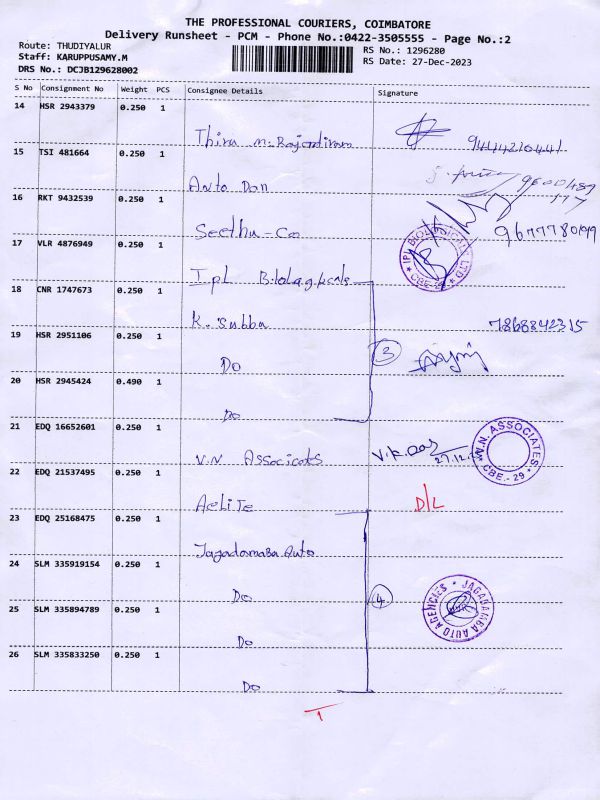 THE PROFESSIONAL COURIERS, COIMBATORE
Delivery Runsheet - PCM - Phone No.:0422-3505555 - Page No.:2
Route: THUDIYALUR
RS No.: 1296280
Staff: KARUPPUSAMY.M
RS Date: 27-Dec-2023
DRS No.: DCJB129628002
S No Consignment No Weight PCS Consignee Details Signature
14 HSR 2943379 0.250 1
Thiru M. Rajendiran 9444210441
15 TSI 481664 0.250 1
Anto Don
16 RKT 9432539 0.250 1
Seethu-Co 9677780199
17 VLR 4876949 0.250 1
IPL BIOLOGICALS LTD CBE-29
I.pL Biologicals
18 CNR 1747673 0.250 1
K. Subba 7868842315
19 HSR 2951106 0.250 1
Do 3
20 HSR 2945424 0.490 1
Do
21 EDQ 16652601 0.250 1
V.N Associcats V.K.Das 27.12
V.N. ASSOCIATES CBE.- 29
22 EDQ 21537495 0.250 1
AeLiTe D/L
23 EDQ 25168475 0.250 1
Jagadamaba Auto
24 SLM 335919154 0.250 1
Do 4
JAGADAMBA AUTO AGENCIES
25 SLM 335894789 0.250 1
Do
26 SLM 335833250 0.250 1
Do
1